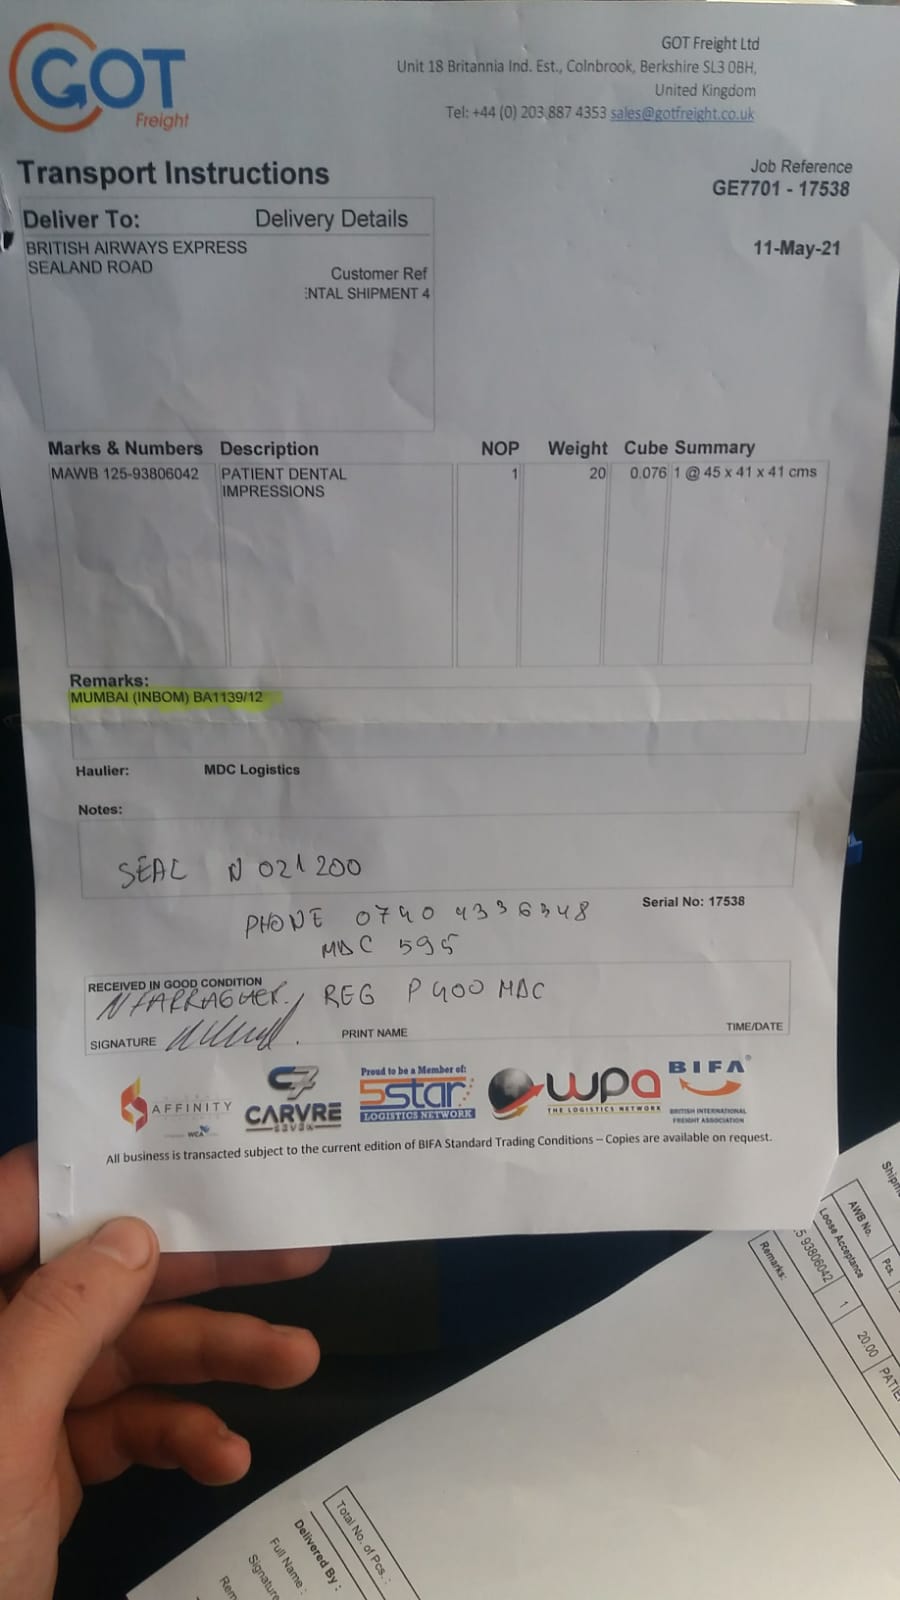 GOT
Freight
GOT Freight Ltd
Unit 18 Britannia Ind. Est., Colnbrook, Berkshire SL3 0BH,
United Kingdom
Tel: +44 (0) 203 887 4353 sales@gotfreight.co.uk
Transport Instructions
Job Reference
GE7701 - 17538
Deliver To: Delivery Details
11-May-21
BRITISH AIRWAYS EXPRESS
SEALAND ROAD
Customer Ref
ENTAL SHIPMENT 4
Marks & Numbers Description NOP Weight Cube Summary
MAWB 125-93806042 PATIENT DENTAL 1 20 0.076 1 @ 45 x 41 x 41 cms
IMPRESSIONS
Remarks:
MUMBAI (INBOM) BA1139/12
Haulier: MDC Logistics
Notes:
SEAL N 021200
Serial No: 17538
PHONE 0740 4336348
MDC 595
RECEIVED IN GOOD CONDITION
N FARRAGHER. REG P400 MDC
SIGNATURE PRINT NAME TIME/DATE
AFFINITY
WCA
CARVRE
SEVEN
Proud to be a Member of:
5star
LOGISTICS NETWORK
wpa
THE LOGISTICS NETWORK
BIFA
BRITISH INTERNATIONAL
FREIGHT ASSOCIATION
All business is transacted subject to the current edition of BIFA Standard Trading Conditions – Copies are available on request.
AWB No. Pcs.
Loose Acceptance
5 93806042 1 20.00
Remarks:
Total No. of Pcs. :
Delivered By :
Full Name :
Signature